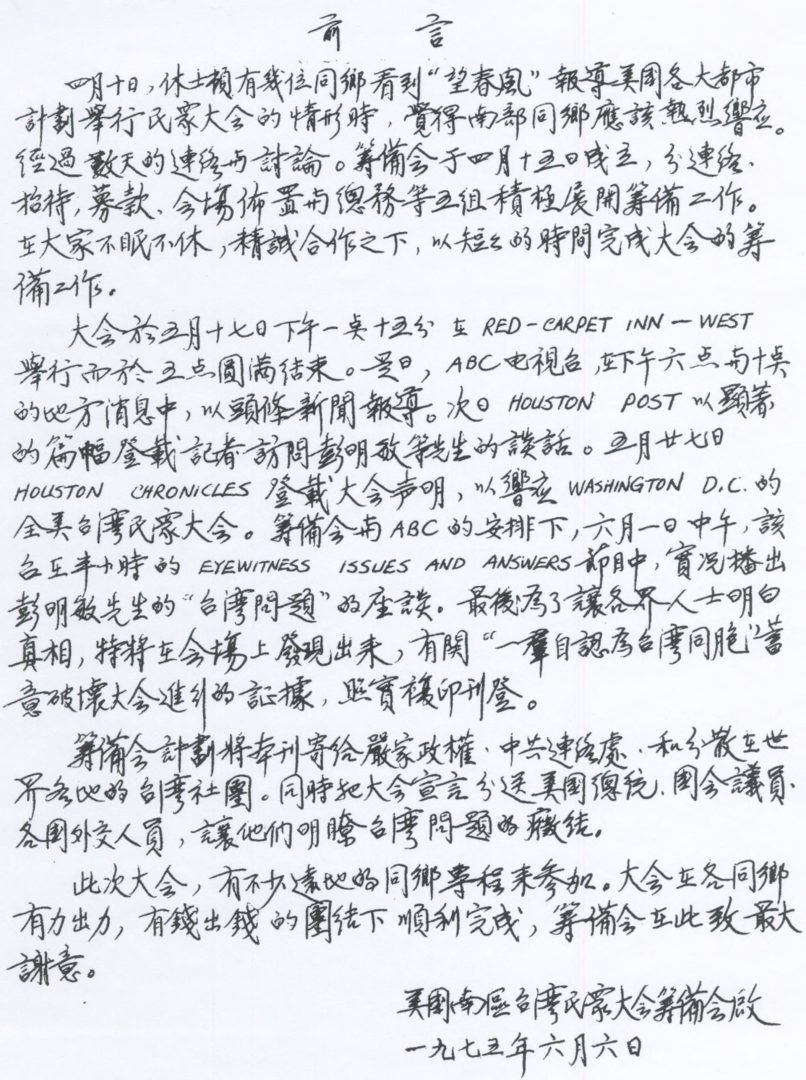 前言
四月十日，休士頓有幾位同鄉看到“望春風”報導美国各大都市
計劃舉行民眾大会的情形時，覺得南部同鄉應該熱烈響應。
經過數天的連絡与討論。筹備会于四月十五日成立，分連絡、
招待，募款、会場佈置与總務等五組積極展開筹備工作。
在大家不眠不休，精誠合作之下，以短短的時間完成大会的筹
備工作。
大会於五月十七日下午一点十五分在 RED-CARPET INN-WEST
舉行而於五点圓滿結束。是日，ABC电視台，在下午六点与十点
的地方消息中，以頭條新聞報導。次日 HOUSTON POST 以顯著
的篇幅登載記者訪問彭明敏等先生的談話。五月廿七日
HOUSTON CHRONICLES 登載大会声明，以響應 WASHINGTON D.C.的
全美台湾民眾大会。筹備会与ABC的安排下，六月一日中午，該
台在半小時的 EYEWITNESS ISSUES AND ANSWERS 節目中，實況播出
彭明敏先生的“台湾問題”的座談。最後為了讓各界人士明白
真相，特將在会場上發現出来，有関“一羣自認為台湾同胞”蓄
意破壞大会進行的証據，照實複印刊登。
筹備会計劃將本刊寄給嚴家政權、中共連絡處、和分散在世
界各地的台湾社團。同時把大会宣言分送美国總統、國会議員、
各国外交人員，讓他们明瞭台湾問題的癥結。
此次大会，有不少遠地的同鄉專程来參加。大会在各同鄉
有力出力，有錢出錢的團結下順利完成，筹備会在此致最大
謝意。
美國南區台湾民眾大会筹備会啟
一九七五年六月六日